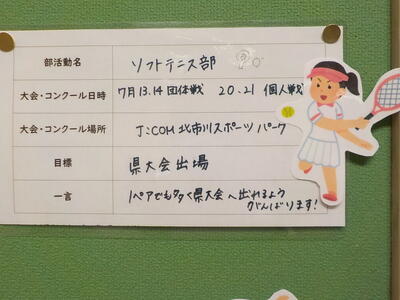 部活動名 ソフトテニス部
大会・コンクール日時 7月13.14団体戦 20.21 個人戦
大会・コンクール場所 J:COM北市川スポーツパーク
目標 県大会出場
一言 1ペアでも多く県大会へ出れるよう
がんばります!